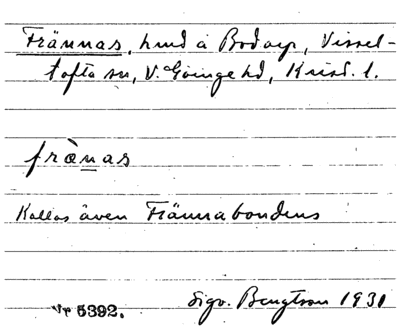 Frännas, hmd å Bodarp, Vissel-
tofta sn, V. Göinge hd, Krist. l.
frànas
Kallas även Frännabondens
Vr 5392.
Sigv. Bengtson 1931